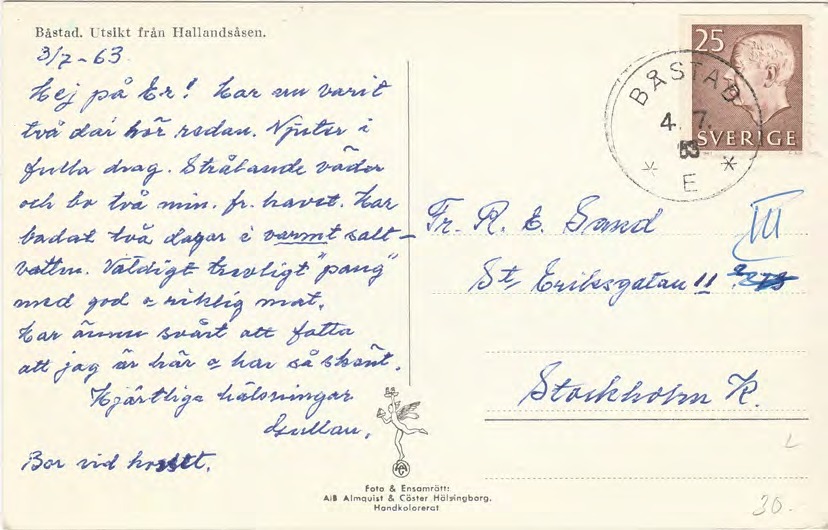 Båstad. Utsikt från Hallandsåsen.
3/7-63
Hej på Er! Har nu varit
två dar här redan. Njuter i
fulla drag. Strålande väder
och bo två min. fr. havet. Har
badat två dagar i varmt salt-
vatten. Väldigt trevligt "pang"
med god o riklig mat.
Har ännu svårt att fatta
att jag är här o har så skönt.
Hjärtliga hälsningar
Gullan.
Bor vid
25
SVERIGE
BÅSTAD
4. 7.
63
* E *
Fr. R. E. Sand
III
St Eriksgatan 11
Stockholm K.
Foto & Ensamrätt:
A/B Almquist & Cöster Hälsingborg.
Handkolorerat
30.